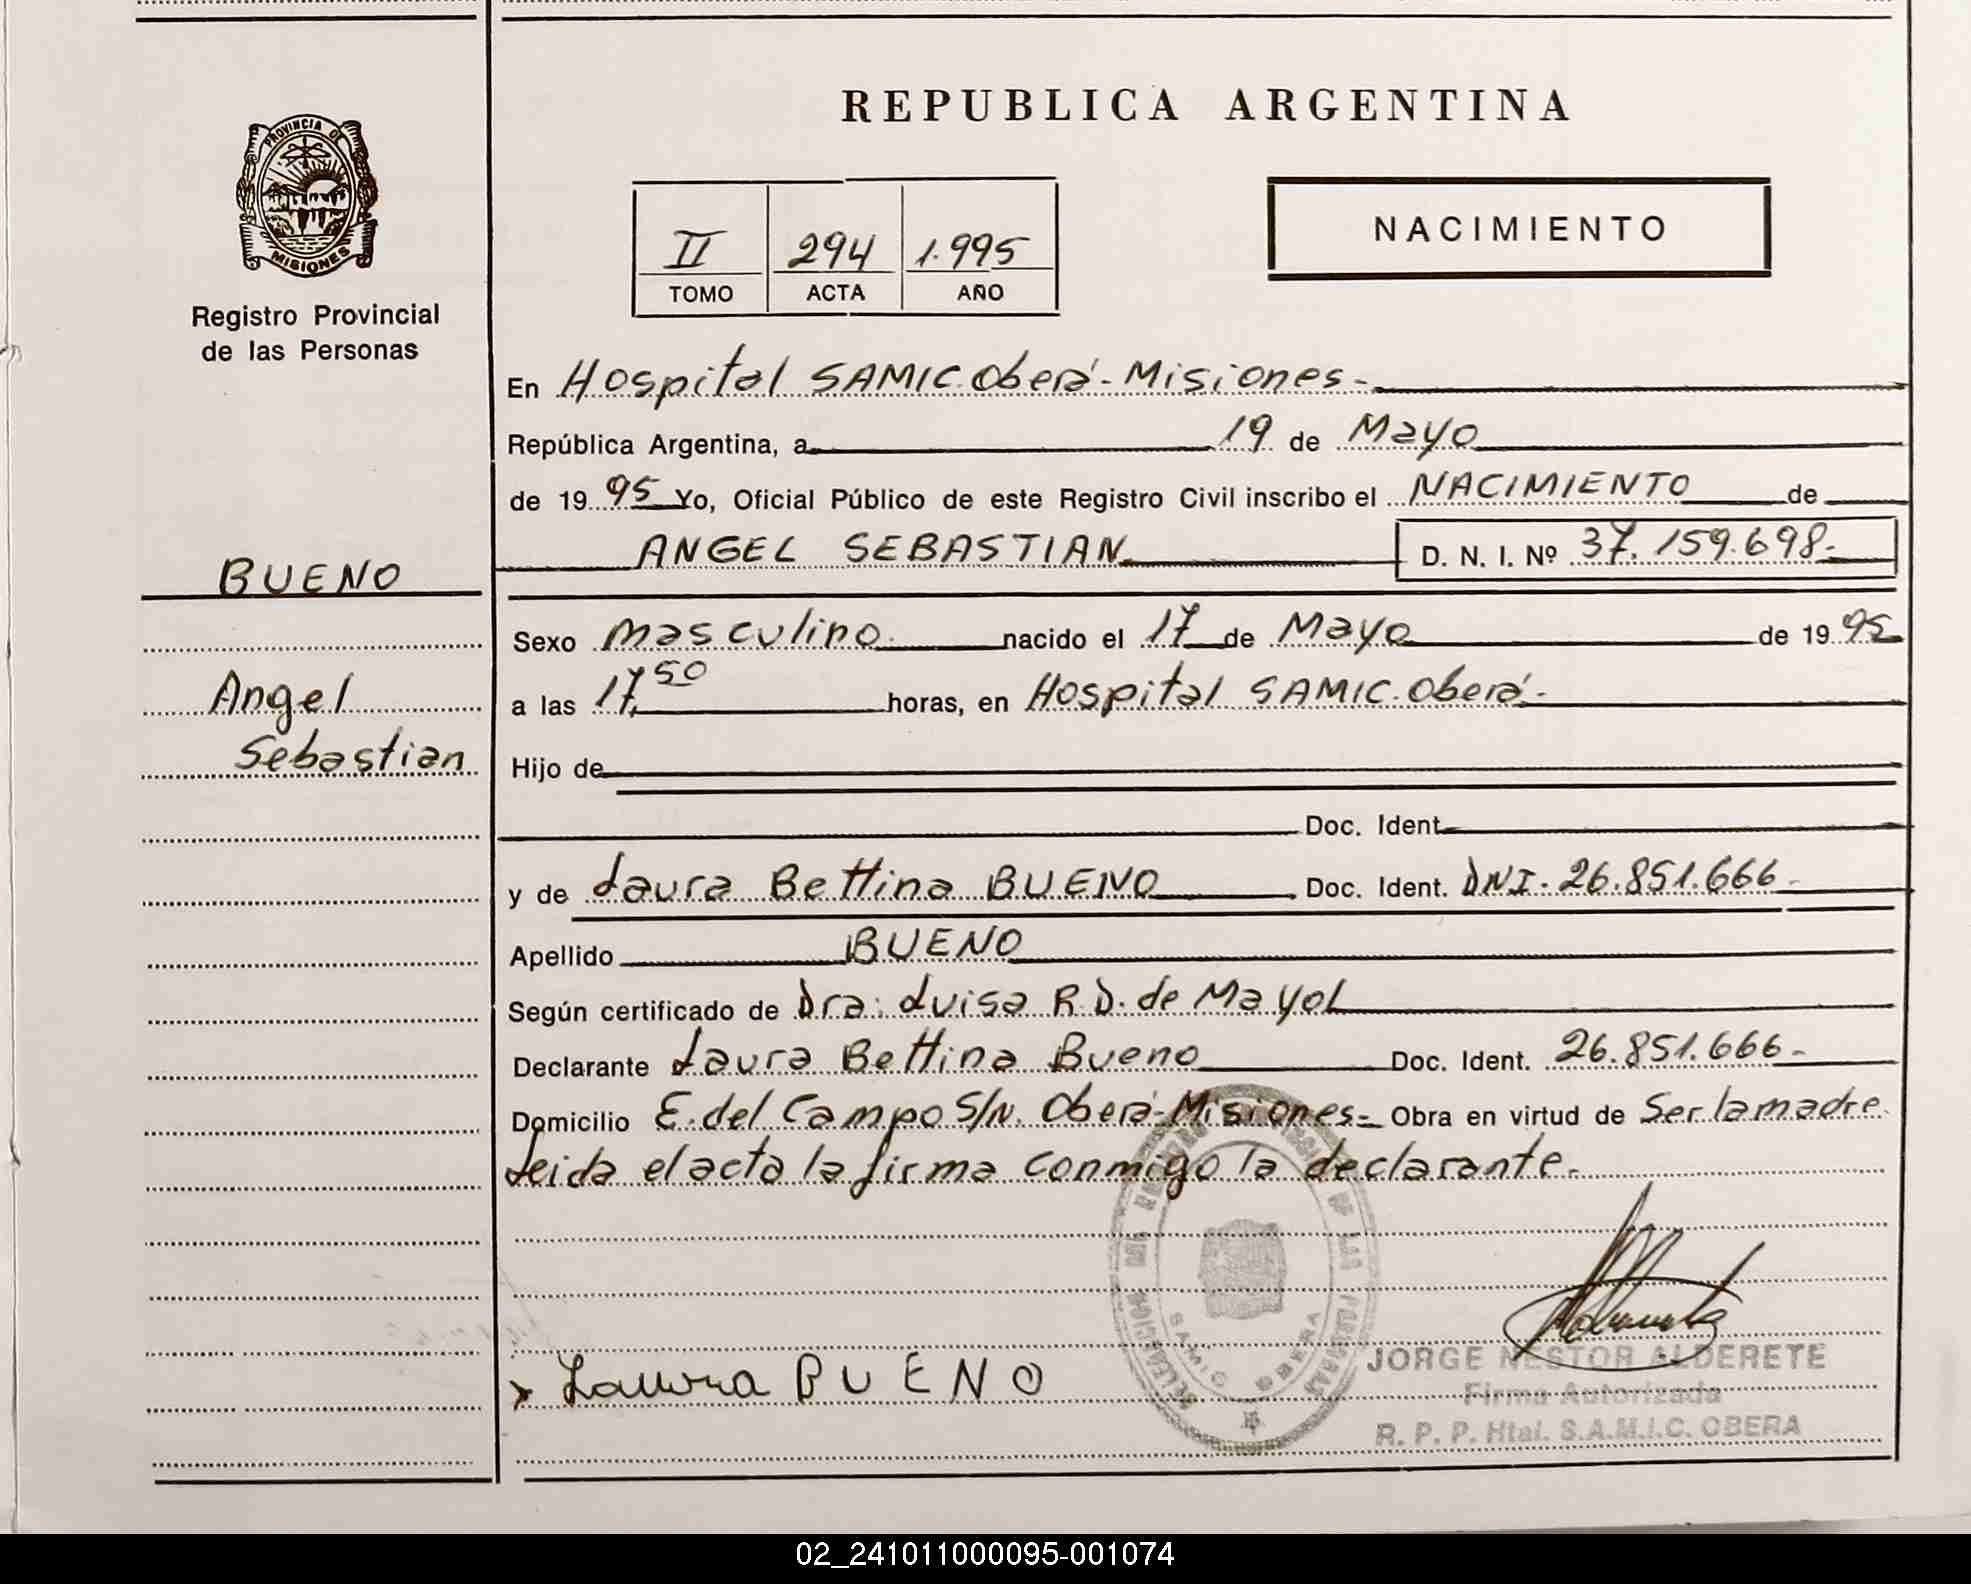 REPUBLICA ARGENTINA
PROVINCIA DE
MISIONES
Registro Provincial
de las Personas
II 294 1.995
TOMO ACTA AÑO
NACIMIENTO
En Hospital SAMIC. Oberá - Misiones -
República Argentina, a 19 de Mayo
de 19 95 Yo, Oficial Público de este Registro Civil inscribo el NACIMIENTO de
ANGEL SEBASTIAN D. N. I. Nº 37.159.698-
BUENO
Angel
Sebastian
Sexo masculino nacido el 17 de Mayo de 19 95
a las 17,50 horas, en Hospital SAMIC. Oberá -
Hijo de
Doc. Ident.
y de Laura Bettina BUENO Doc. Ident. DNI. 26.851.666 -
Apellido BUENO
Según certificado de Dra: Luisa R.D. de Mayol
Declarante Laura Bettina Bueno Doc. Ident. 26.851.666 -
Domicilio E. del Campo S/N. Oberá - Misiones - Obra en virtud de Ser la madre
Leida el acta la firma conmigo la declarante.
SAMIC OBERA
Laura BUENO
JORGE NESTOR ALDERETE
Firma Autorizada
R. P. P. Htal. S.A.M.I.C. OBERA
02_241011000095-001074